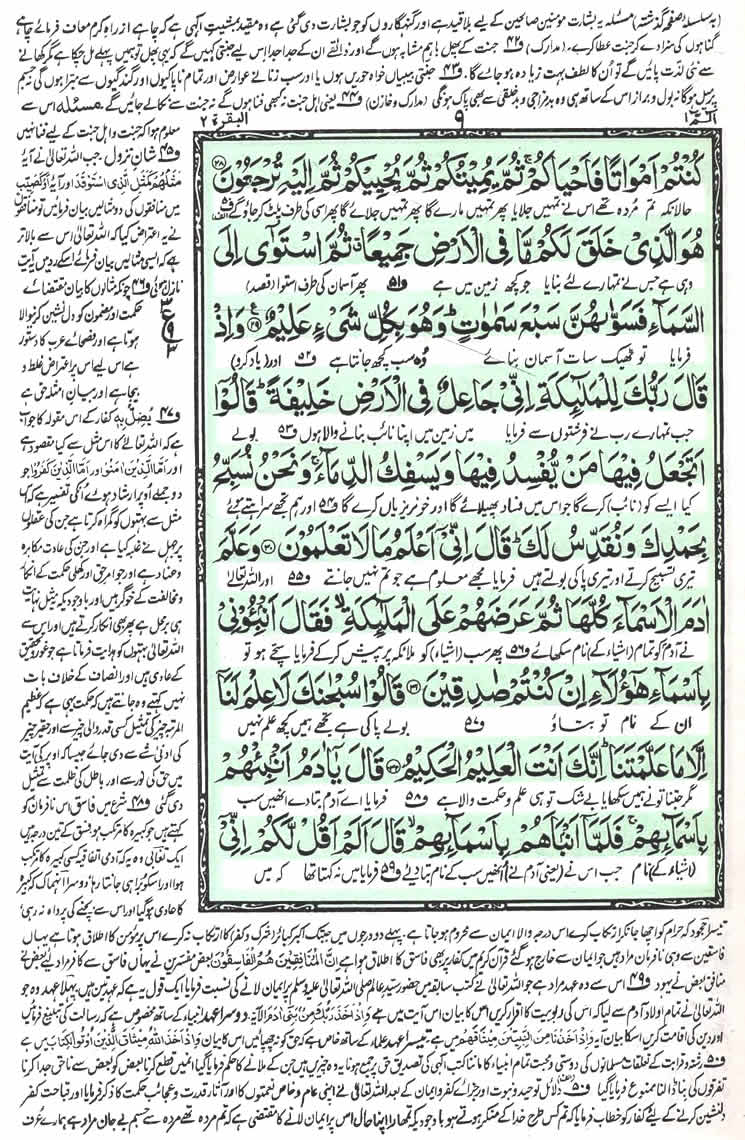 (بسلسلہ صفحہ گذشتہ) مسئلہ یہ بشارت مؤمنین صالحین کے لیے بلا قید ہے اور گنہگاروں کو جو بشارت دی گئی ہے وہ مقید بمشیتِ الٰہی ہے کہ چاہے از راہِ کرم معاف فرمائے چاہے
گناہوں کی سزا دے کر جنت عطا کرے۔ (مدارک) ف۴۲ جنت کے پھل باہم مشابہ ہوں گے اور ذائقے ان کے جدا جدا اس لیے جنتی کہیں گے کہ یہی پھل تو ہمیں پہلے مل چکا ہے مگر کھانے
سے نئی لذت پائیں گے تو اُن کا لطف بہت زیادہ ہو جائے گا۔ ف۴۳ جنتی بیبیاں خواہ حوریں ہوں یا اور سب زنانے عوارض اور تمام ناپاکیوں اور گندگیوں سے مبرا ہوں گی نہ جسم
پر میل ہوگا نہ بول و براز اس کے ساتھ ہی وہ بدمزاجی و بدخلقی سے بھی پاک ہونگی (مدارک و خازن) ف۴۴ یعنی اہل جنت نہ کبھی فنا ہوں گے نہ جنت سے نکالے جائیں گے مسئلہ اس سے
الٓمّٓ ۱
۹
البقرۃ ۲
كُنْتُمْ اَمْوَاتًا فَاَحْيَاكُمْ ۚ ثُمَّ يُمِيْتُكُمْ ثُمَّ يُحْيِيْكُمْ ثُمَّ اِلَيْهِ تُرْجَعُوْنَ ﴿۲۸﴾
حالانکہ تم مردہ تھے اس نے تمہیں جلایا پھر تمہیں مارے گا پھر تمہیں جلائے گا پھر اسی کی طرف پلٹ کر جاؤ گے
هُوَ الَّذِيْ خَلَقَ لَكُمْ مَّا فِي الْاَرْضِ جَمِيْعًا ۗ ثُمَّ اسْتَوٰٓى اِلَى
وہی ہے جس نے تمہارے لئے بنایا جو کچھ زمین میں ہے ف۵۱ پھر آسمان کی طرف استوا (قصد)
السَّمَآءِ فَسَوّٰىهُنَّ سَبْعَ سَمٰوٰتٍ ؕ وَهُوَ بِكُلِّ شَيْءٍ عَلِيْمٌ ﴿۲۹﴾ وَاِذْ
فرمایا تو ٹھیک سات آسمان بنائے وہ سب کچھ جانتا ہے ف۵۲ اور (یاد کرو)
قَالَ رَبُّكَ لِلْمَلٰٓئِكَةِ اِنِّيْ جَاعِلٌ فِي الْاَرْضِ خَلِيْفَةً ؕ قَالُوْٓا
جب تمہارے رب نے فرشتوں سے فرمایا میں زمین میں اپنا نائب بنانے والا ہوں ف۵۳ بولے
اَتَجْعَلُ فِيْهَا مَنْ يُّفْسِدُ فِيْهَا وَيَسْفِكُ الدِّمَآءَ ۚ وَنَحْنُ نُسَبِّحُ
کیا ایسے کو (نائب) کرے گا جو اس میں فساد پھیلائے گا اور خونریزیاں کرے گا ف۵۴ اور ہم تجھے سراہتے ہوئے
بِحَمْدِكَ وَنُقَدِّسُ لَكَ ؕ قَالَ اِنِّيْٓ اَعْلَمُ مَا لَا تَعْلَمُوْنَ ﴿۳۰﴾ وَعَلَّمَ
تیری تسبیح کرتے اور تیری پاکی بولتے ہیں فرمایا مجھے معلوم ہے جو تم نہیں جانتے ف۵۵ اور اللہ تعالیٰ
اٰدَمَ الْاَسْمَآءَ كُلَّهَا ثُمَّ عَرَضَهُمْ عَلَى الْمَلٰٓئِكَةِ ۙ فَقَالَ اَنْۢبِـُٔوْنِيْ
نے آدم کو تمام (اشیاء کے) نام سکھائے ف۵۶ پھر سب (اشیاء) کو ملائکہ پر پیش کر کے فرمایا سچے ہو تو
بِاَسْمَآءِ هٰٓؤُلَآءِ اِنْ كُنْتُمْ صٰدِقِيْنَ ﴿۳۱﴾ قَالُوْا سُبْحٰنَكَ لَا عِلْمَ لَنَآ
ان کے نام تو بتاؤ ف۵۷ بولے پاکی ہے تجھے ہمیں کچھ علم نہیں
اِلَّا مَا عَلَّمْتَنَا ؕ اِنَّكَ اَنْتَ الْعَلِيْمُ الْحَكِيْمُ ﴿۳۲﴾ قَالَ يٰٓاٰدَمُ اَنْۢبِئْهُمْ
مگر جتنا تو نے ہمیں سکھایا بے شک تو ہی علم و حکمت والا ہے ف۵۸ فرمایا اے آدم بتا دے انھیں سب
بِاَسْمَآئِهِمْ ۚ فَلَمَّآ اَنْۢبَاَهُمْ بِاَسْمَآئِهِمْ ۙ قَالَ اَلَمْ اَقُلْ لَّكُمْ اِنِّيْٓ
(اشیاء کے) نام جب اس نے (یعنی آدم نے) انھیں سب کے نام بتا دیئے ف۵۹ فرمایا میں نہ کہتا تھا کہ میں
معلوم ہوا کہ جنت و اہل جنت کے لیے فنا نہیں
ف۴۵ شان نزول جب اللہ تعالیٰ نے آیہ
مَثَلُهُمْ كَمَثَلِ الَّذِي اسْتَوْقَدَ اور آیہ اَوْ كَصَيِّبٍ
میں منافقوں کی دو مثالیں بیان فرمائیں تو منافقوں
نے یہ اعتراض کیا کہ اللہ تعالیٰ اس سے بالاتر
ہے کہ ایسی مثالیں بیان فرمائے اسکے رد میں یہ آیت
نازل ہوئی ف۴۶ چونکہ مثالوں کا بیان مقتضائے
حکمت اور مضمون کو دل نشین کرنے والا
ہوتا ہے اور فصحائے عرب کا دستور
ہے اس لیے اس پر اعتراض غلط و
بیجا ہے اور بیان امثلہ حق ہے
ف۴۷ يُضِلُّ بِهٖ کفار کے اس مقولہ کا جواب
ہے کہ اللہ تعالیٰ کا اس مثل سے کیا مقصود ہے
اور اَمَّا الَّذِيْنَ اٰمَنُوْا اور اَمَّا الَّذِيْنَ كَفَرُوْا جو
دو جملے اوپر ارشاد ہوئے اُنکی تفسیر ہے کہ اس
مثل سے بہتوں کو گمراہ کرتا ہے جن کی عقلوں
پر جہل نے غلبہ کیا ہے اور جن کی عادت مکابرہ
و عناد ہے اور جو امر حق اور کھلی حکمت کے انکار
و مخالفت کے خوگر ہیں اور باوجودیکہ یہ مثل نہایت
ہی برمحل ہے پھر بھی انکار کرتے ہیں اور اس سے
اللہ تعالیٰ بہتوں کو ہدایت فرماتا ہے جو غور و تحقیق
کے عادی ہیں اور انصاف کے خلاف بات
نہیں کہتے وہ جانتے ہیں کہ حکمت یہی ہے کہ عظیم
المرتبہ چیز کی تمثیل کسی قدر والی چیز سے اور حقیر چیز
کی ادنیٰ شے سے دی جائے جیسا کہ اوپر کی آیت
میں حق کی نور سے اور باطل کی ظلمت سے تمثیل
دی گئی ف۴۸ شرع میں فاسق اس نافرمان کو
کہتے ہیں جو کبیرہ کا مرتکب ہو فسق کے تین درجہ ہیں
ایک تغابی وہ یہ کہ آدمی اتفاقیہ کسی کبیرہ کا مرتکب
ہوا اور اسکو برا ہی جانتا رہا، دوسرا انہماک کہ کبیرہ
کا عادی ہو گیا اور اس سے بچنے کی پرواہ نہ رہی،
تیسرا جحود کہ حرام کو اچھا جان کر ارتکاب کرے اس درجہ والا ایمان سے محروم ہو جاتا ہے، پہلے دو درجوں میں جب تک اکبر کبائر (شرک و کفر) کا ارتکاب نہ کرے اس پر مؤمن کا اطلاق ہوتا ہے یہاں
فاسقین سے وہی نافرمان مراد ہیں جو ایمان سے خارج ہو گئے قرآن کریم میں کفار پر بھی فاسق کا اطلاق ہوا ہے اِنَّ الْمُنٰفِقِيْنَ هُمُ الْفٰسِقُوْنَ بعض مفسرین نے یہاں فاسق سے کافر مراد لیے بعض نے
منافق بعض نے یہود ف۴۹ اس سے وہ عہد مراد ہے جو اللہ تعالیٰ نے کتب سابقہ میں حضور سید عالم صلی اللہ تعالیٰ علیہ وسلم پر ایمان لانے کی نسبت فرمایا ایک قول یہ ہے کہ عہد تین ہیں پہلا عہد وہ جو
اللہ تعالیٰ نے تمام اولاد آدم سے لیا کہ اس کی ربوبیت کا اقرار کریں اس کا بیان اس آیت میں ہے وَاِذْ اَخَذَ رَبُّكَ مِنْۢ بَنِيْٓ اٰدَمَ الآیہ دوسرا عہد انبیاء کے ساتھ مخصوص ہے کہ رسالت کی تبلیغ فرمائیں
اور دین کی اقامت کریں اسکا بیان آیہ وَاِذْ اَخَذْنَا مِنَ النَّبِيّٖنَ مِيْثَاقَهُمْ میں ہے تیسرا عہد علماء کے ساتھ خاص ہے کہ حق کو نہ چھپائیں اس کا بیان وَاِذْ اَخَذَ اللّٰهُ مِيْثَاقَ الَّذِيْنَ اُوْتُوا الْكِتٰبَ میں ہے
ف۵۰ رشتہ و قرابت کے تعلقات مسلمانوں کی دوستی و محبت تمام انبیاء کا ماننا کتب الٰہی کی تصدیق حق پر جمع ہونا یہ وہ چیزیں ہیں جن کے ملانے کا حکم فرمایا گیا انہیں قطع کرنا بعض کو بعض سے ناحق جدا کرنا
تفرقوں کی بنا ڈالنا ممنوع فرمایا گیا دلائل توحید و نبوت اور جزائے کفر و ایمان کے بعد اللہ تعالیٰ نے اپنی عام و خاص نعمتوں کا اور آثار قدرت و عجائب حکمت کا ذکر فرمایا اور قباحت کفر
دلنشین کرنے کے لیے کفار کو خطاب فرمایا کہ تم کس طرح خدا کے منکر ہوتے ہو باوجودیکہ تمہارا اپنا حال اس پر ایمان لانے کا مقتضی ہے کہ تم مردہ تھے مردہ سے جسم بے جان مراد ہے ہمارے عرف